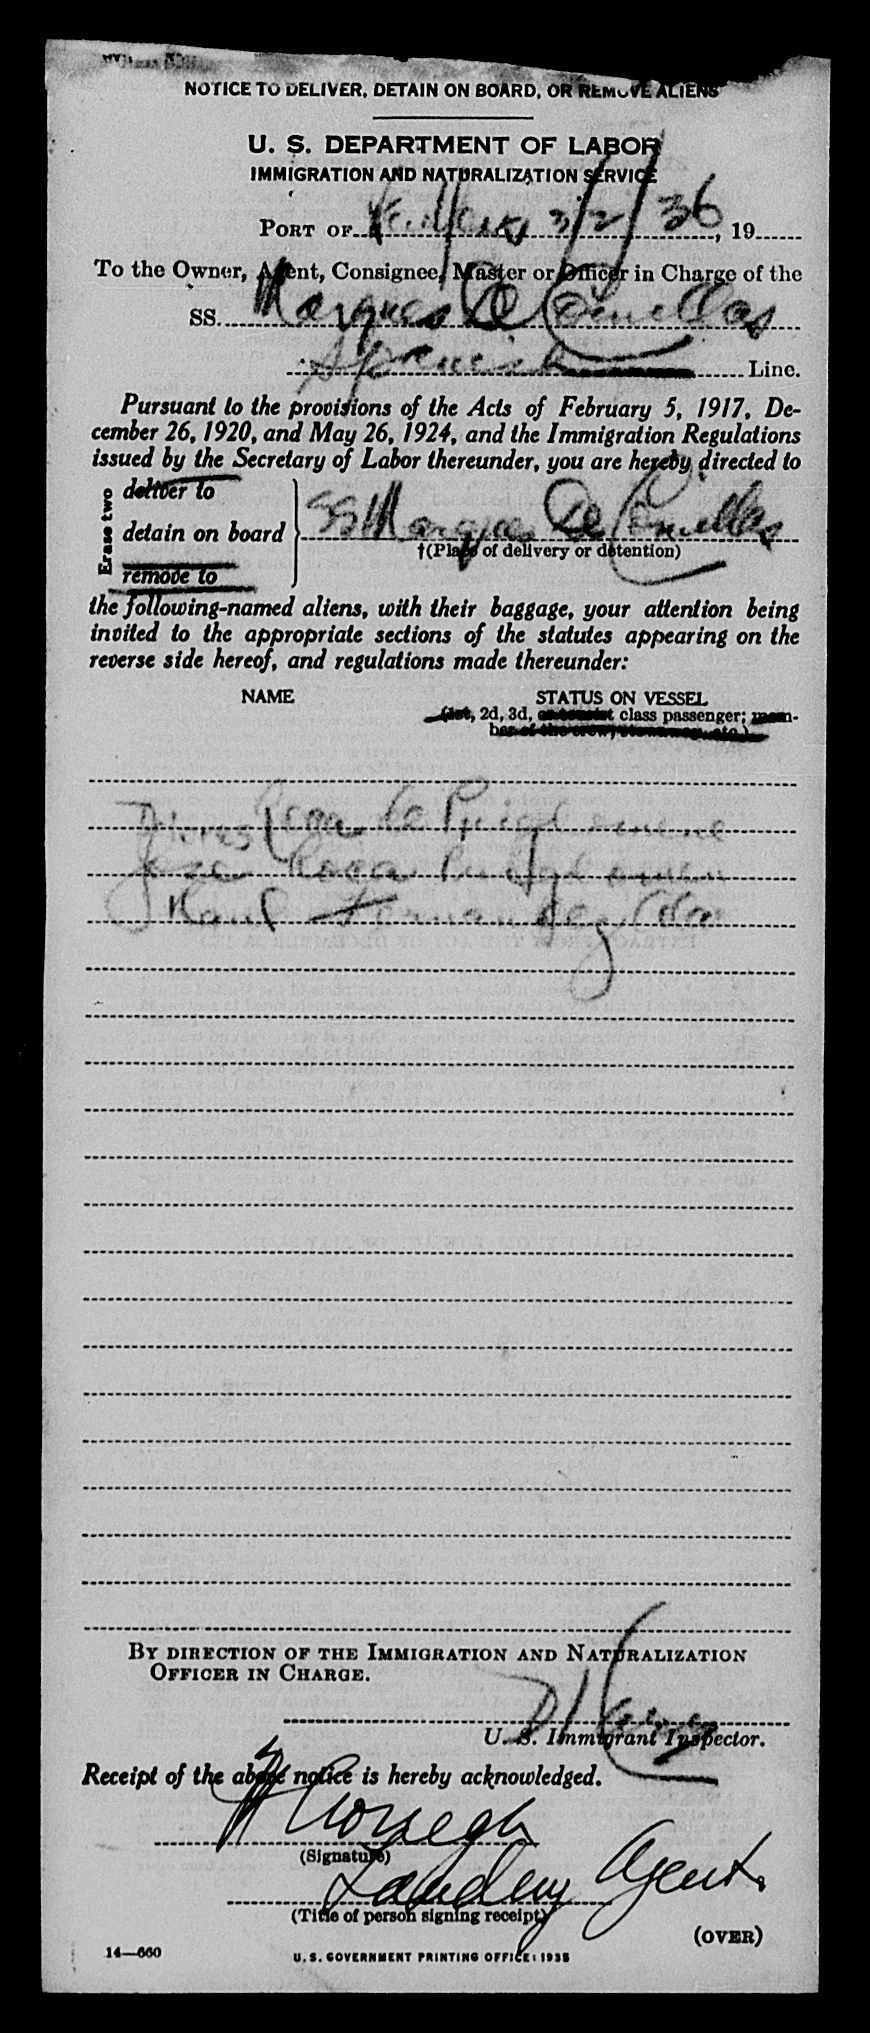 NOTICE TO DELIVER, DETAIN ON BOARD, OR REMOVE ALIENS
U. S. DEPARTMENT OF LABOR
IMMIGRATION AND NATURALIZATION SERVICE
PORT OF New York 3/2/36, 19
To the Owner, Agent, Consignee, Master or Officer in Charge of the
SS. Marques De Comillas
Spanish Line.
Pursuant to the provisions of the Acts of February 5, 1917, De-
cember 26, 1920, and May 26, 1924, and the Immigration Regulations
issued by the Secretary of Labor thereunder, you are hereby directed to
Erase two
deliver to
detain on board SS Marques De Comillas
†(Place of delivery or detention)
remove to
the following-named aliens, with their baggage, your attention being
invited to the appropriate sections of the statutes appearing on the
reverse side hereof, and regulations made thereunder:
NAME STATUS ON VESSEL
(1st, 2d, 3d, or tourist class passenger; mem-
ber of the crew, stowaway, etc.)
Roca de Puig
Jose Roca
Raul Fernandez
BY DIRECTION OF THE IMMIGRATION AND NATURALIZATION
OFFICER IN CHARGE.
U. S. Immigrant Inspector.
Receipt of the above notice is hereby acknowledged.
(Signature)
Landing Agent.
(Title of person signing receipt)
(OVER)
14—660
U. S. GOVERNMENT PRINTING OFFICE: 1935